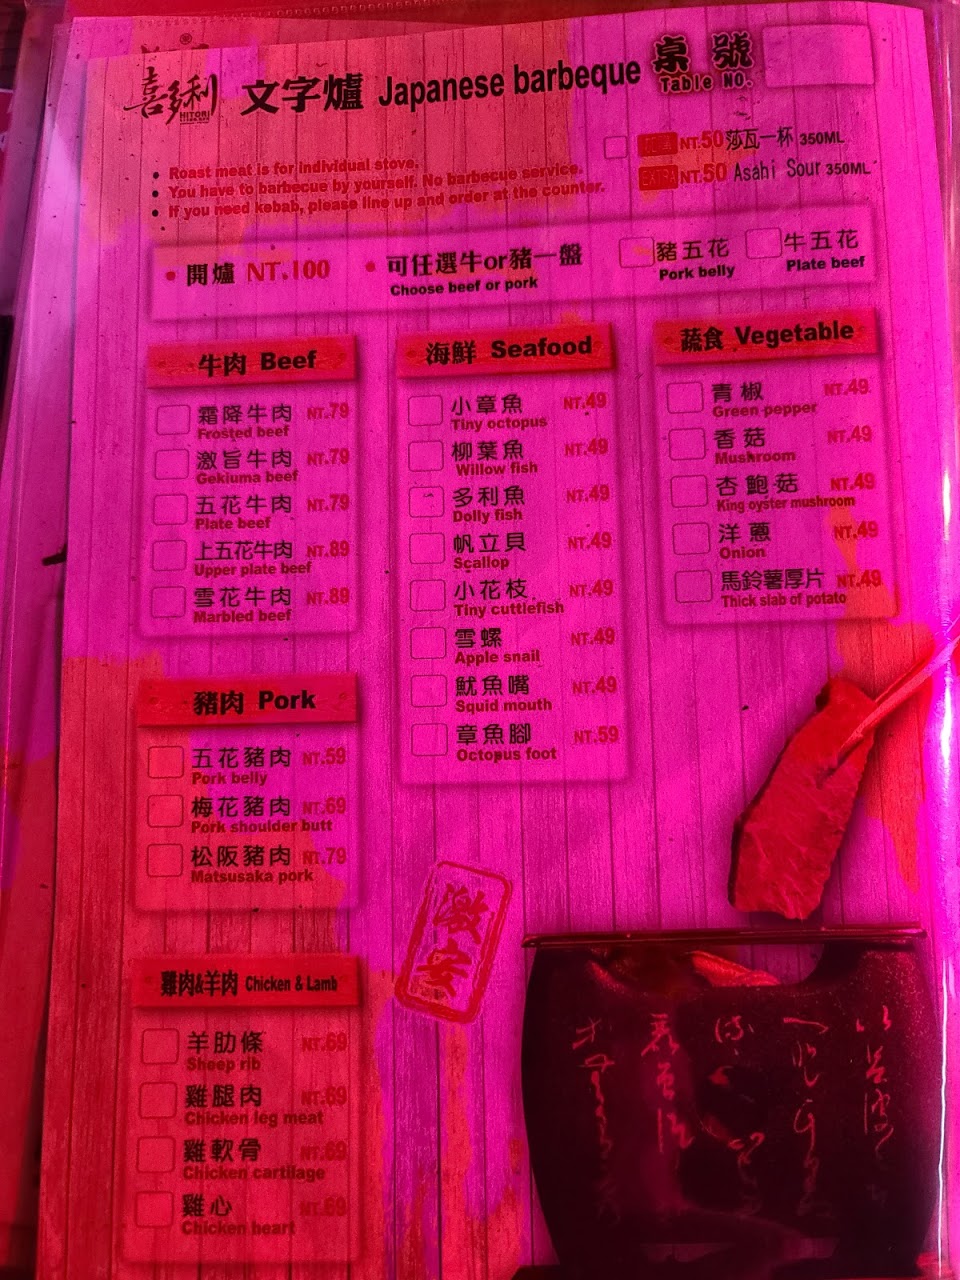 喜多利
HITORI
文字爐 Japanese barbeque
桌號
Table NO.
NT.50 莎瓦一杯 350ML
NT.50 Asahi Sour 350ML
• Roast meat is for individual stove.
• You have to barbecue by yourself. No barbecue service.
• If you need kebab, please line up and order at the counter.
• 開爐 NT.100
• 可任選牛or豬一盤
Choose beef or pork
豬五花
Pork belly
牛五花
Plate beef
牛肉 Beef
霜降牛肉 NT.79
Frosted beef
激旨牛肉 NT.79
Gekiuma beef
五花牛肉 NT.79
Plate beef
上五花牛肉 NT.89
Upper plate beef
雪花牛肉 NT.89
Marbled beef
豬肉 Pork
五花豬肉 NT.59
Pork belly
梅花豬肉 NT.69
Pork shoulder butt
松阪豬肉 NT.79
Matsusaka pork
雞肉&羊肉 Chicken & Lamb
羊肋條 NT.69
Sheep rib
雞腿肉 NT.69
Chicken leg meat
雞軟骨 NT.69
Chicken cartilage
雞心 NT.69
Chicken heart
海鮮 Seafood
小章魚 NT.49
Tiny octopus
柳葉魚 NT.49
Willow fish
多利魚 NT.49
Dolly fish
帆立貝 NT.49
Scallop
小花枝 NT.49
Tiny cuttlefish
雪螺 NT.49
Apple snail
魷魚嘴 NT.49
Squid mouth
章魚腳 NT.59
Octopus foot
蔬食 Vegetable
青椒 NT.49
Green pepper
香菇 NT.49
Mushroom
杏鮑菇 NT.49
King oyster mushroom
洋蔥 NT.49
Onion
馬鈴薯厚片 NT.49
Thick slab of potato
激安